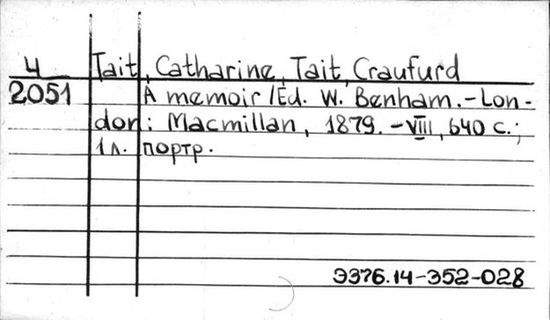 Ч Tait, Catharine, Tait, Craufurd
2051 A memoir / Ed. W. Benham. - Lon-
don: Macmillan, 1879. - VIII, 640 с.;
1 л. портр.
Э376.14-352-028